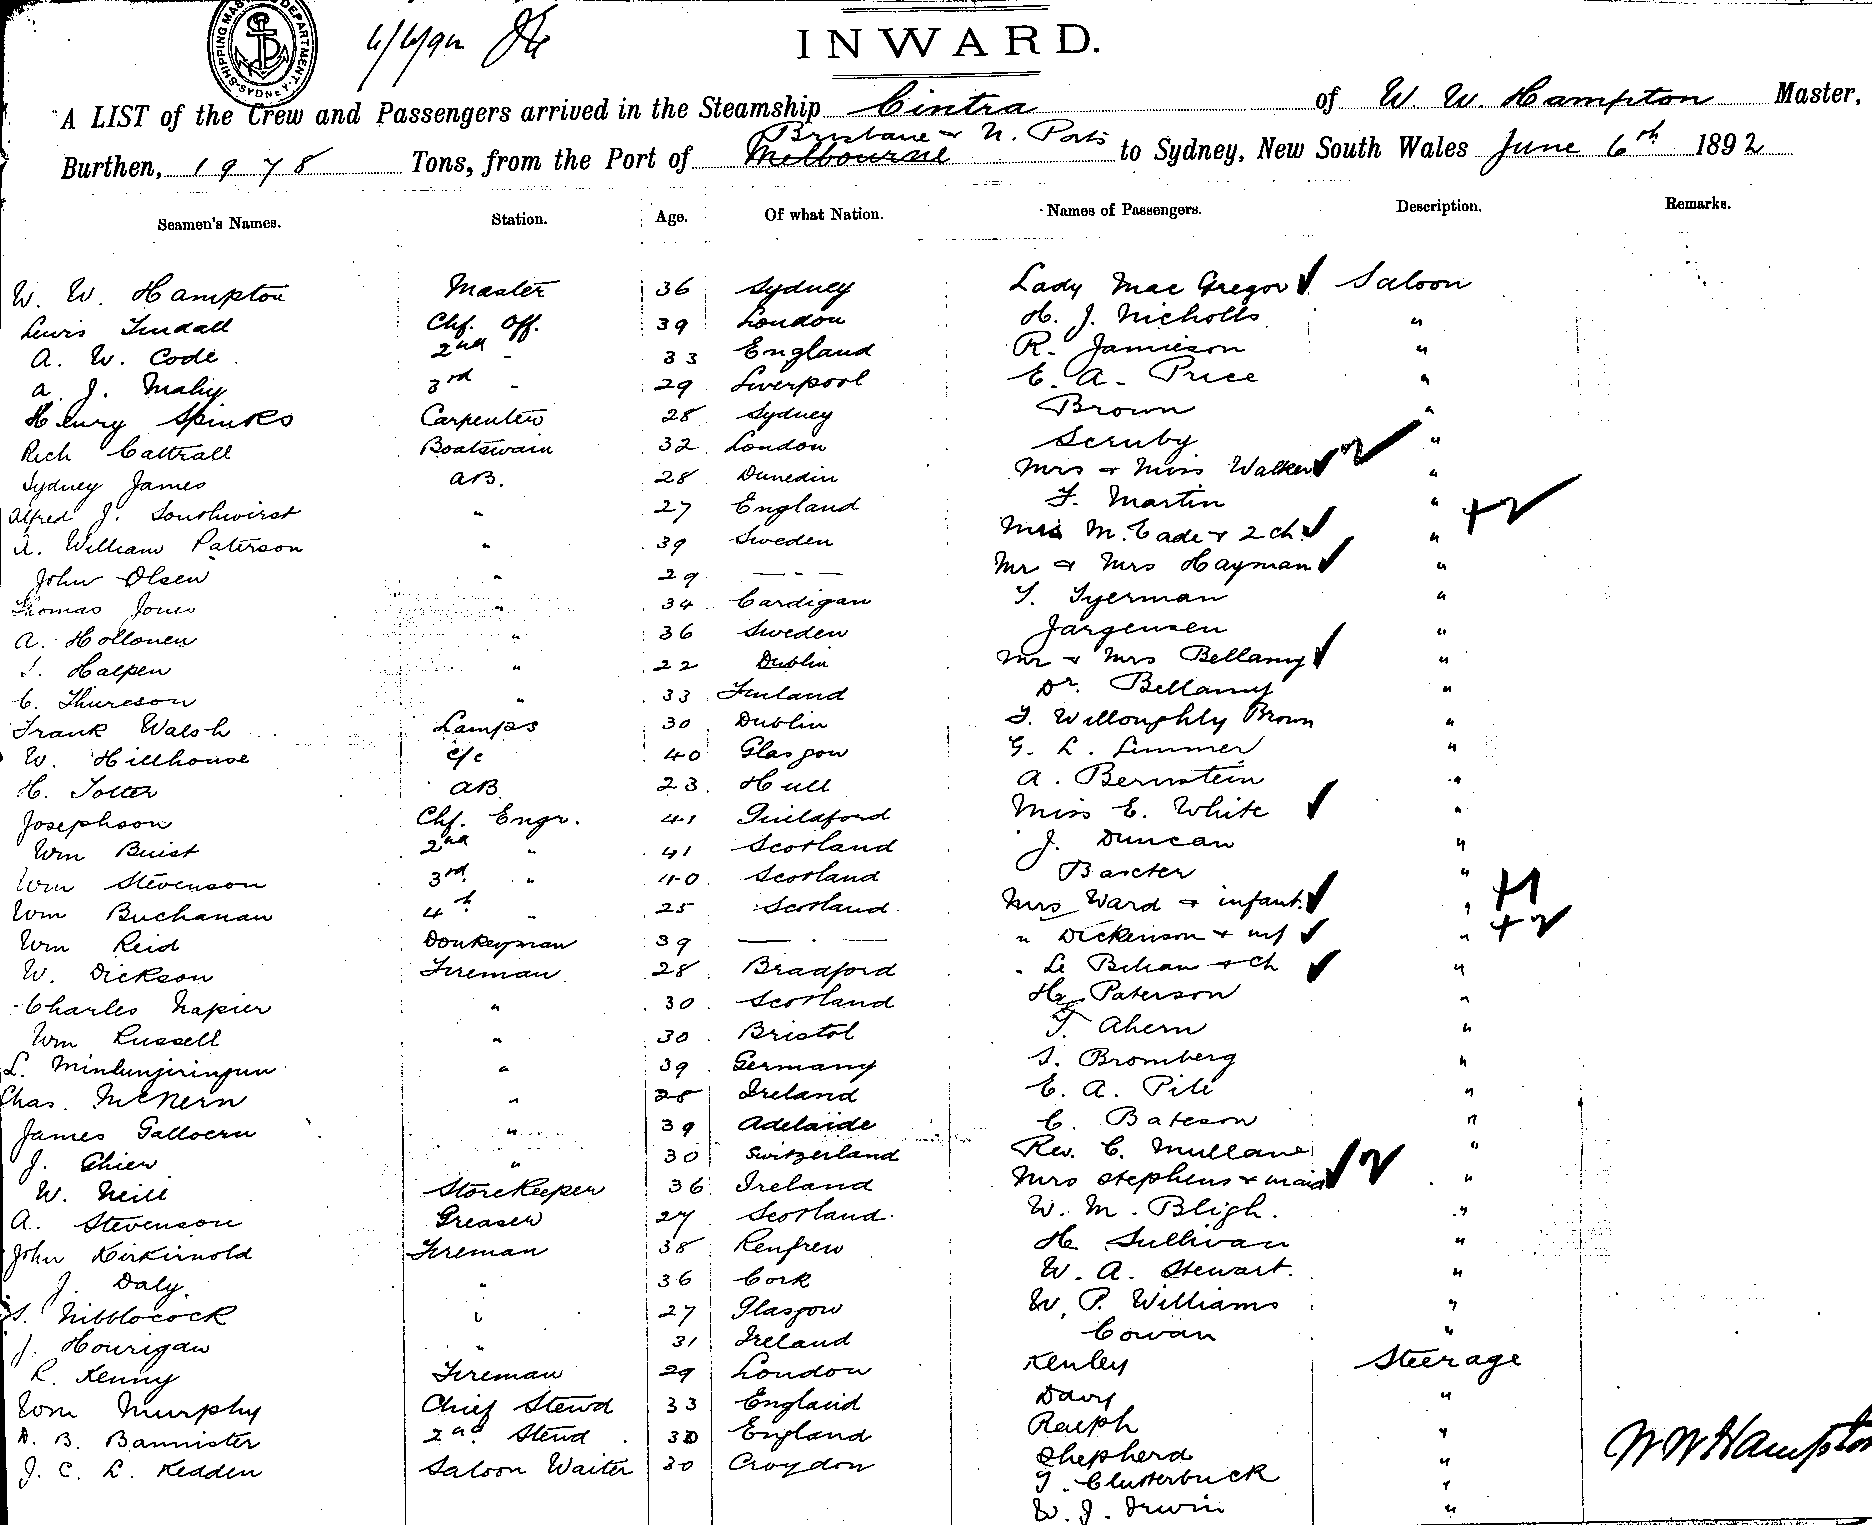 SHIPPING MASTER'S DEPARTMENT SYDNEY
6/6/92
INWARD.
A LIST of the Crew and Passengers arrived in the Steamship Cintra of W. W. Hampton Master,
Brisbane & N. Ports
Burthen, 1978 Tons, from the Port of Melbourne to Sydney, New South Wales June 6th 1892
Seamen's Names. Station. Age. Of what Nation. Names of Passengers. Description. Remarks.
W. W. Hampton Master 36 Sydney Lady Mac Gregor Saloon
Lewis Tindall Chf. Off. 39 London H. J. Nicholls "
A. W. Code 2nd " 33 England R. Jamieson "
A. J. Mahy 3rd " 29 Liverpool E. A. Price "
Henry Spinks Carpenter 28 Sydney Brown "
Rich Cattrall Boatswain 32 London Scruby "
Sydney James AB. 28 Dunedin Mrs & Miss Walker 2 "
Alfred J. " 27 England F. Martin "
A. William Paterson " 39 Sweden Mrs M. Cade & 2 ch " +2
John Olsen " 29 — - — Mr & Mrs Hayman "
Thomas Jones " 34 Cardigan T. Tyerman "
A. Hollonen " 36 Sweden Jargensen "
J. Halpen " 22 Dublin Mr & Mrs Bellamy "
C. Thureson " 33 Finland Dr. Bellamy "
Frank Walsh Lamps 30 Dublin F. Willoughby Brown "
W. Hillhouse 40 Glasgow G. L. Limmer "
H. AB 23 Hull A. Bernstein "
Josephson Chf. Engr. 41 Guildford Miss E. White "
Wm Buist 2nd " 41 Scotland J. Duncan "
Wm Stevenson 3rd " 40 Scotland Baxter "
Wm Buchanan 4th " 25 Scotland Mrs Ward & infant " +1
Wm Reid Donkeyman 39 — - — " Dickenson & inf " +2
W. Dickson Fireman 28 Bradford " Le Bihan & ch "
Charles Napier " 30 Scotland Hy Paterson "
Wm Russell " 30 Bristol T. Ahern "
L. " 39 Germany S. Bromberg "
Chas. McKern " 28 Ireland E. A. Pile "
James " 39 Adelaide C. Bateson "
J. Ghier " 30 Switzerland Rev. C. Mullane "
W. Neill Storekeeper 36 Ireland Mrs Stephens & maid 2 "
A. Stevenson Greaser 27 Scotland W. M. Bligh. "
John Fireman 38 Renfrew H. Sullivan "
J. Daly. " 36 Cork W. A. Stewart. "
S. Nibblocock " 27 Glasgow W. P. Williams "
J. Hourigan " 31 Ireland Cowan "
R. Kenny Fireman 29 London Kenley Steerage
Wm Murphy Chief Stewd 33 England Davy "
D. B. Bannister 2nd Stewd 30 England Ralph "
W W Hampton
J. C. L. Kedden Saloon Waiter 30 Croydon Shepherd "
T. Clutterbuck "
W. J. Irwin "